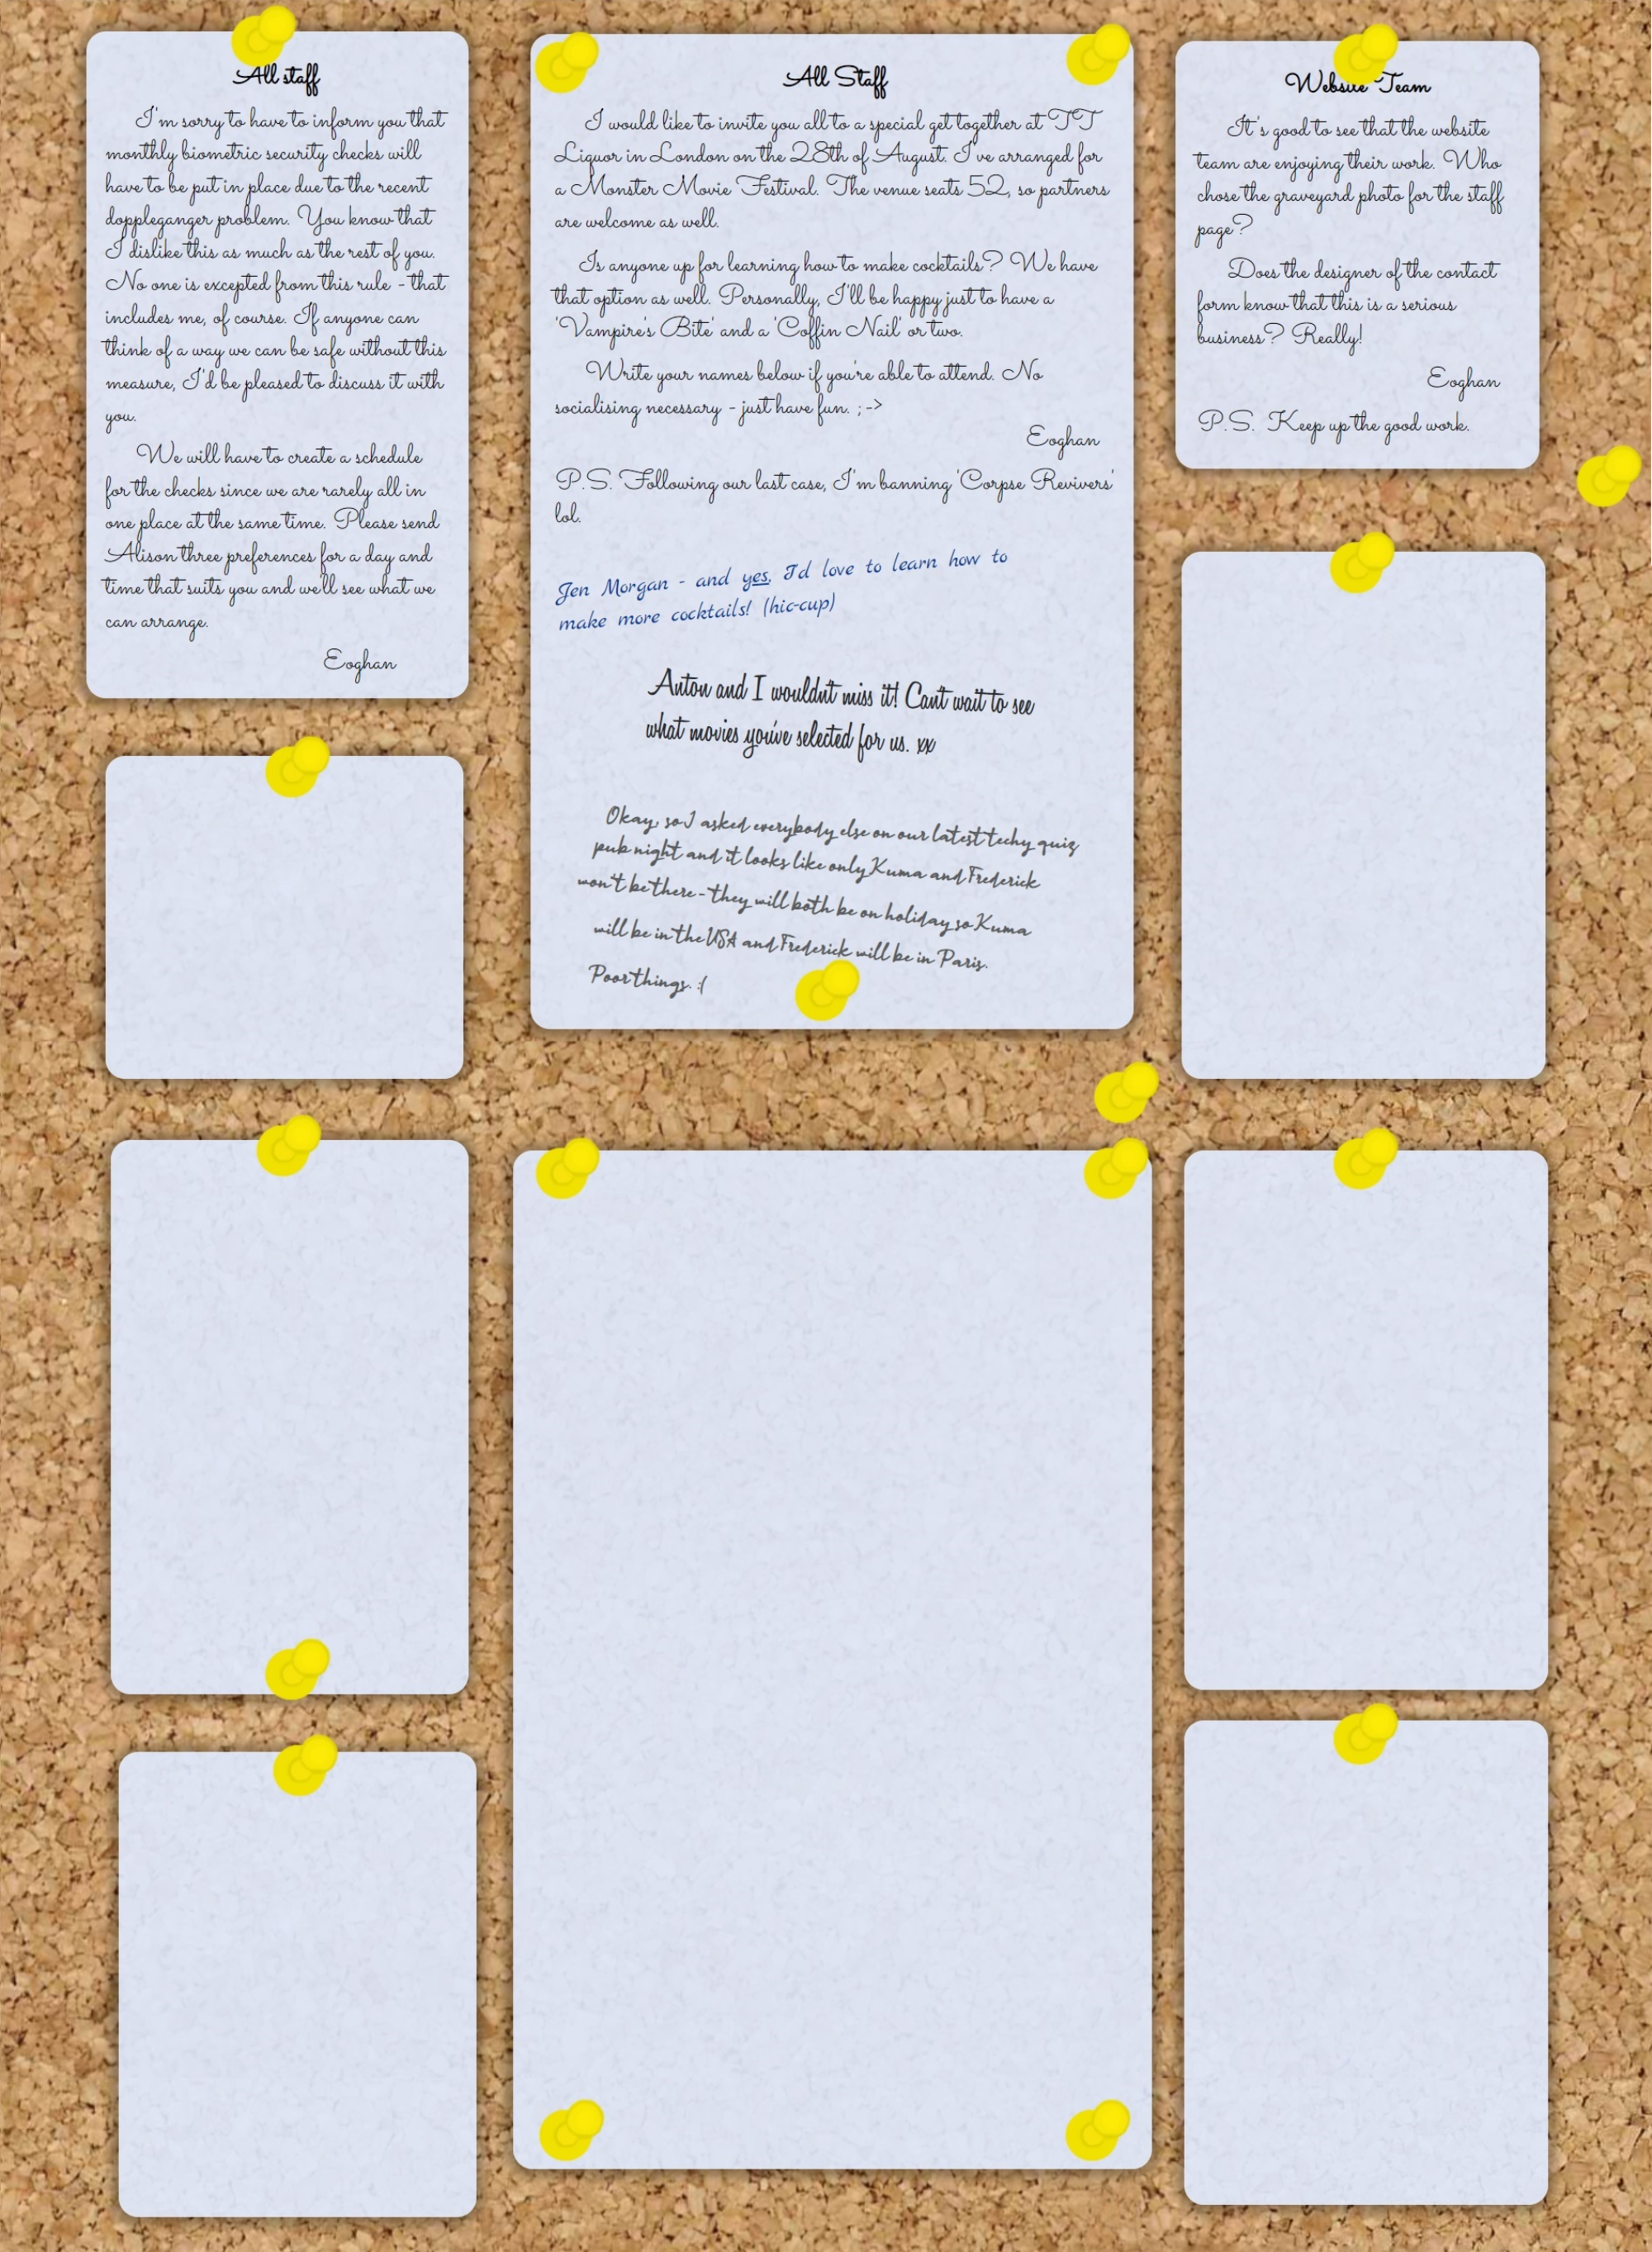 All staff
I'm sorry to have to inform you that
monthly biometric security checks will
have to be put in place due to the recent
doppleganger problem. You know that
I dislike this as much as the rest of you.
No one is excepted from this rule - that
includes me, of course. If anyone can
think of a way we can be safe without this
measure, I'd be pleased to discuss it with
you.
We will have to create a schedule
for the checks since we are rarely all in
one place at the same time. Please send
Alison three preferences for a day and
time that suits you and we'll see what we
can arrange.
Eoghan
All Staff
I would like to invite you all to a special get together at TT
Liquor in London on the 28th of August. I've arranged for
a Monster Movie Festival. The venue seats 52, so partners
are welcome as well.
Is anyone up for learning how to make cocktails? We have
that option as well. Personally, I'll be happy just to have a
'Vampire's Bite' and a 'Coffin Nail' or two.
Write your names below if you're able to attend. No
socialising necessary - just have fun. ; ->
Eoghan
P.S. Following our last case, I'm banning 'Corpse Revivers'
lol.
Jen Morgan - and yes, I'd love to learn how to
make more cocktails! (hic-cup)
Anton and I wouldn't miss it! Can't wait to see
what movies you've selected for us. xx
Okay, so I asked everybody else on our latest techy quiz
pub night and it looks like only Kuma and Frederick
won't be there - they will both be on holiday so Kuma
will be in the USA and Frederick will be in Paris.
Poor things. :(
Website Team
It's good to see that the website
team are enjoying their work. Who
chose the graveyard photo for the staff
page?
Does the designer of the contact
form know that this is a serious
business? Really!
Eoghan
P.S. Keep up the good work.